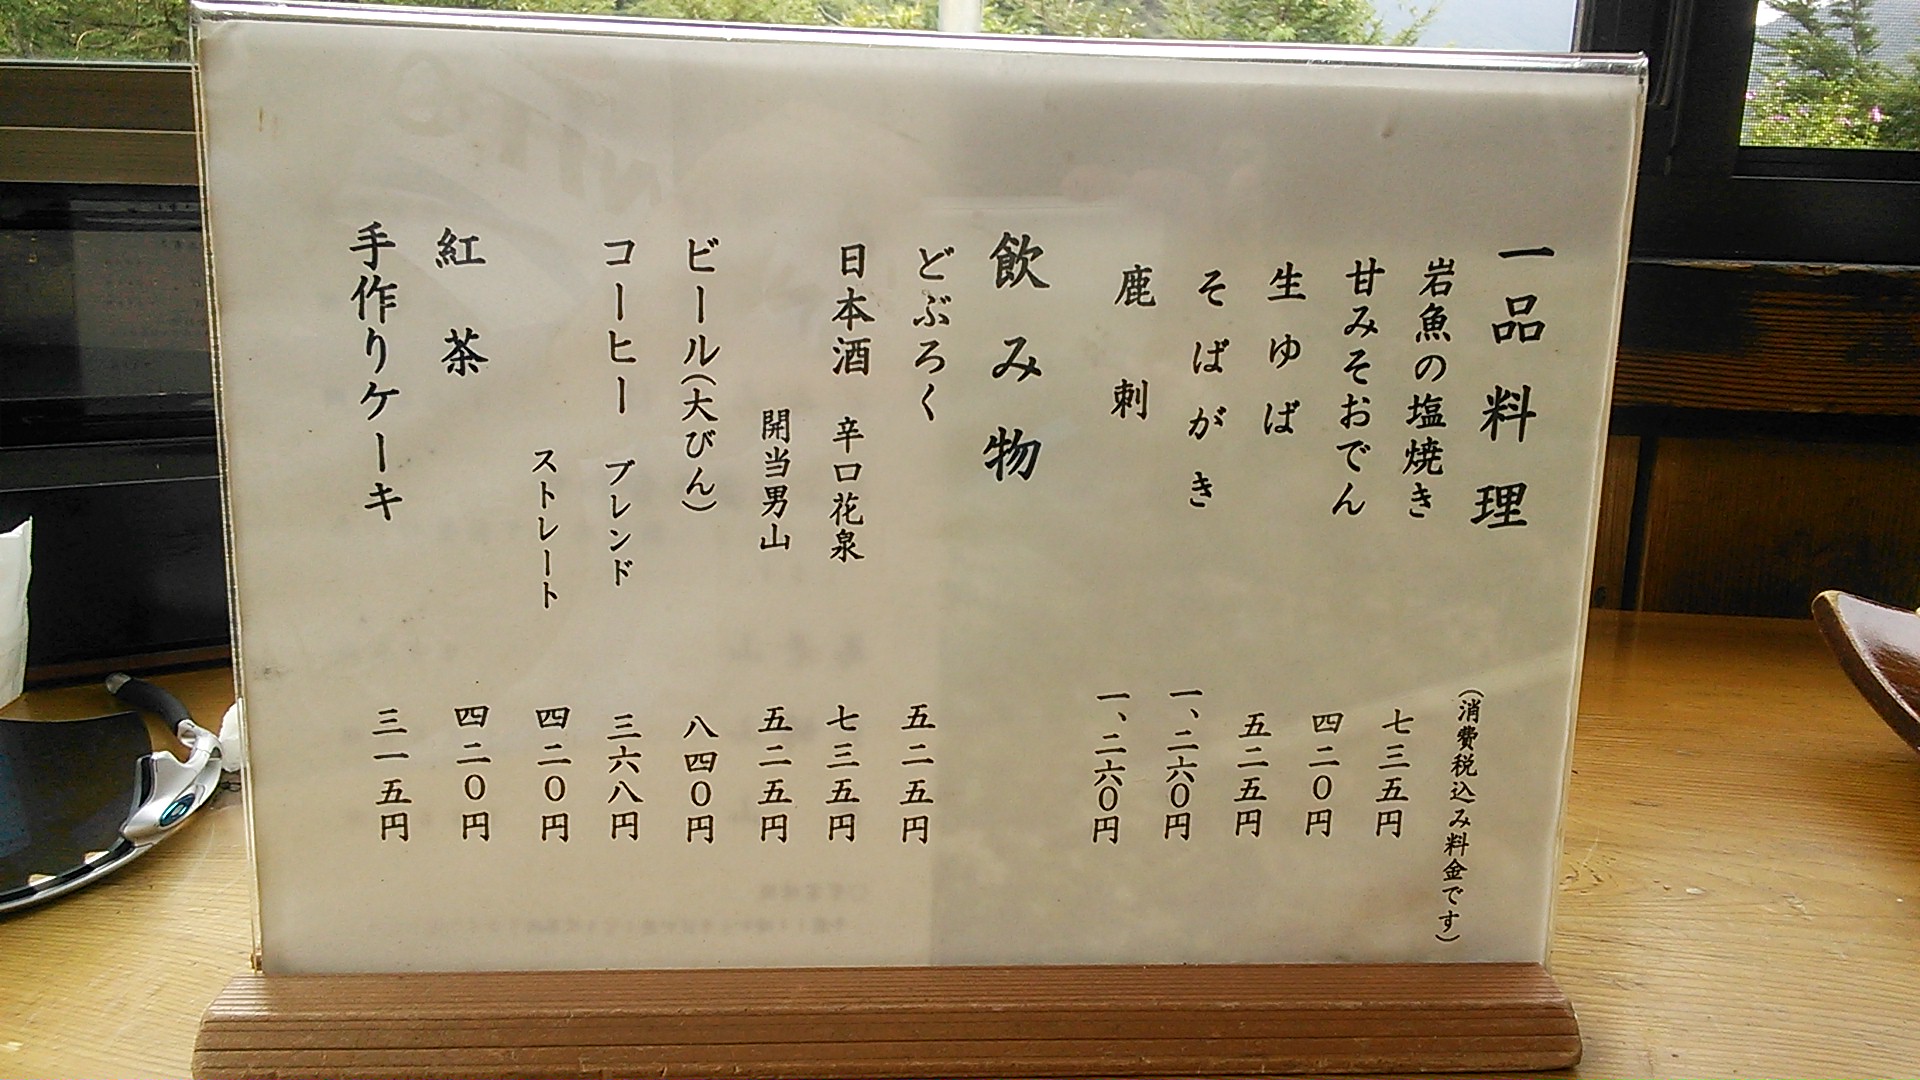 一品料理
(消費税込み料金です)
岩魚の塩焼き 七三五円
甘みそおでん 四二〇円
生ゆば 五二五円
そばがき 一、二六〇円
鹿刺 一、二六〇円
飲み物
どぶろく 五二五円
日本酒 辛口花泉 七三五円
開当男山 五二五円
ビール(大びん) 八四〇円
コーヒー ブレンド 三六八円
ストレート 四二〇円
紅茶 四二〇円
手作りケーキ 三一五円